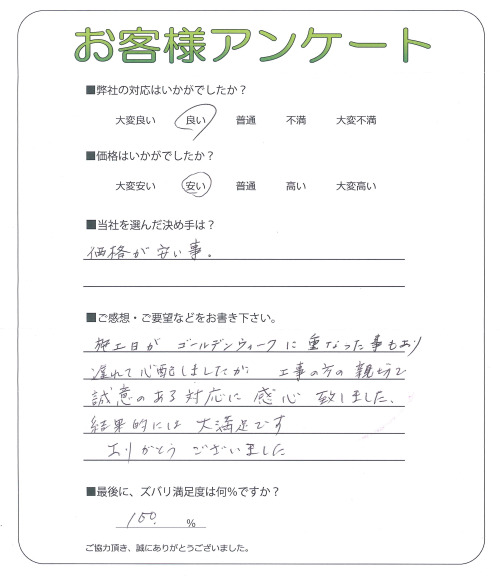 お客様アンケート
■弊社の対応はいかがでしたか？
大変良い 良い 普通 不満 大変不満
■価格はいかがでしたか？
大変安い 安い 普通 高い 大変高い
■当社を選んだ決め手は？
価格が安い事。
■ご感想・ご要望などをお書き下さい。
施工日が ゴールデンウィークに重なった事もあり
遅れて心配しましたが 工事の方の親切で
誠意のある対応に感心致しました、
結果的には大満足です
ありがとうございました
■最後に、ズバリ満足度は何％ですか？
100. ％
ご協力頂き、誠にありがとうございました。